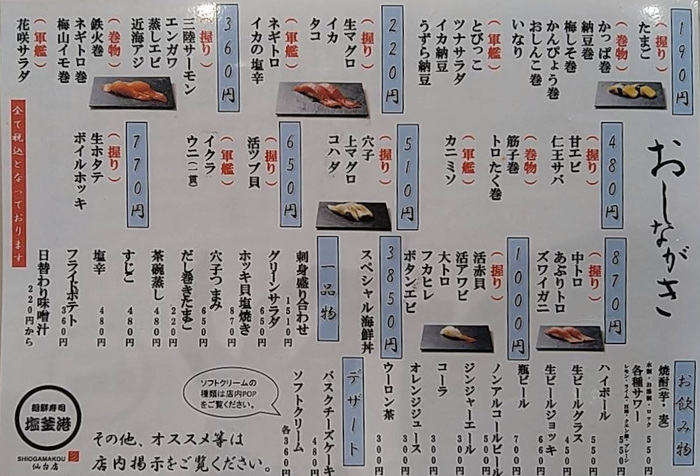 おしながき
190円
(握り)
たまご
(巻物)
かっぱ巻
納豆巻
梅しそ巻
かんぴょう巻
おしんこ巻
いなり
(軍艦)
とびっこ
ツナサラダ
イカ納豆
うずら納豆
220円
(握り)
生マグロ
イカ
タコ
(軍艦)
ネギトロ
イカの塩辛
360円
(握り)
三陸サーモン
エンガワ
蒸しエビ
近海アジ
(巻物)
鉄火巻
ネギトロ巻
梅山イモ巻
(軍艦)
花咲サラダ
480円
(握り)
甘エビ
仁王サバ
(巻物)
筋子巻
トロたく巻
(軍艦)
カニミソ
510円
(握り)
穴子
上マグロ
コハダ
650円
(握り)
活ツブ貝
(軍艦)
イクラ
ウニ(一貫)
770円
(握り)
生ホタテ
ボイルホッキ
全て税込となっております
870円
(握り)
中トロ
あぶりトロ
ズワイガニ
1000円
(握り)
活赤貝
活アワビ
大トロ
フカヒレ
ボタンエビ
3850円
スペシャル海鮮丼
一品物
刺身盛り合わせ 1510円
グリーンサラダ 650円
ホッキ貝塩焼き 870円
穴子つまみ 650円
だし巻きたまご 220円
茶碗蒸し 480円
すじこ 480円
塩辛 480円
フライドポテト 360円
日替わり味噌汁 220円から
お飲み物
焼酎(芋・麦)
水割・お湯割・ロック 550円
各種サワー
550円
ハイボール 550円
生ビールグラス 450円
生ビールジョッキ 660円
瓶ビール 700円
ノンアルコールビール
ジンジャーエール 300円
コーラ 300円
オレンジジュース 300円
ウーロン茶 300円
デザート
バスクチーズケーキ 480円
ソフトクリーム 各360円
ソフトクリームの
種類は店内POP
をご覧ください。
その他、オススメ等は
店内掲示をご覧ください。
廻鮮寿司
塩釜港
SHIOGAMAKOU
仙台店